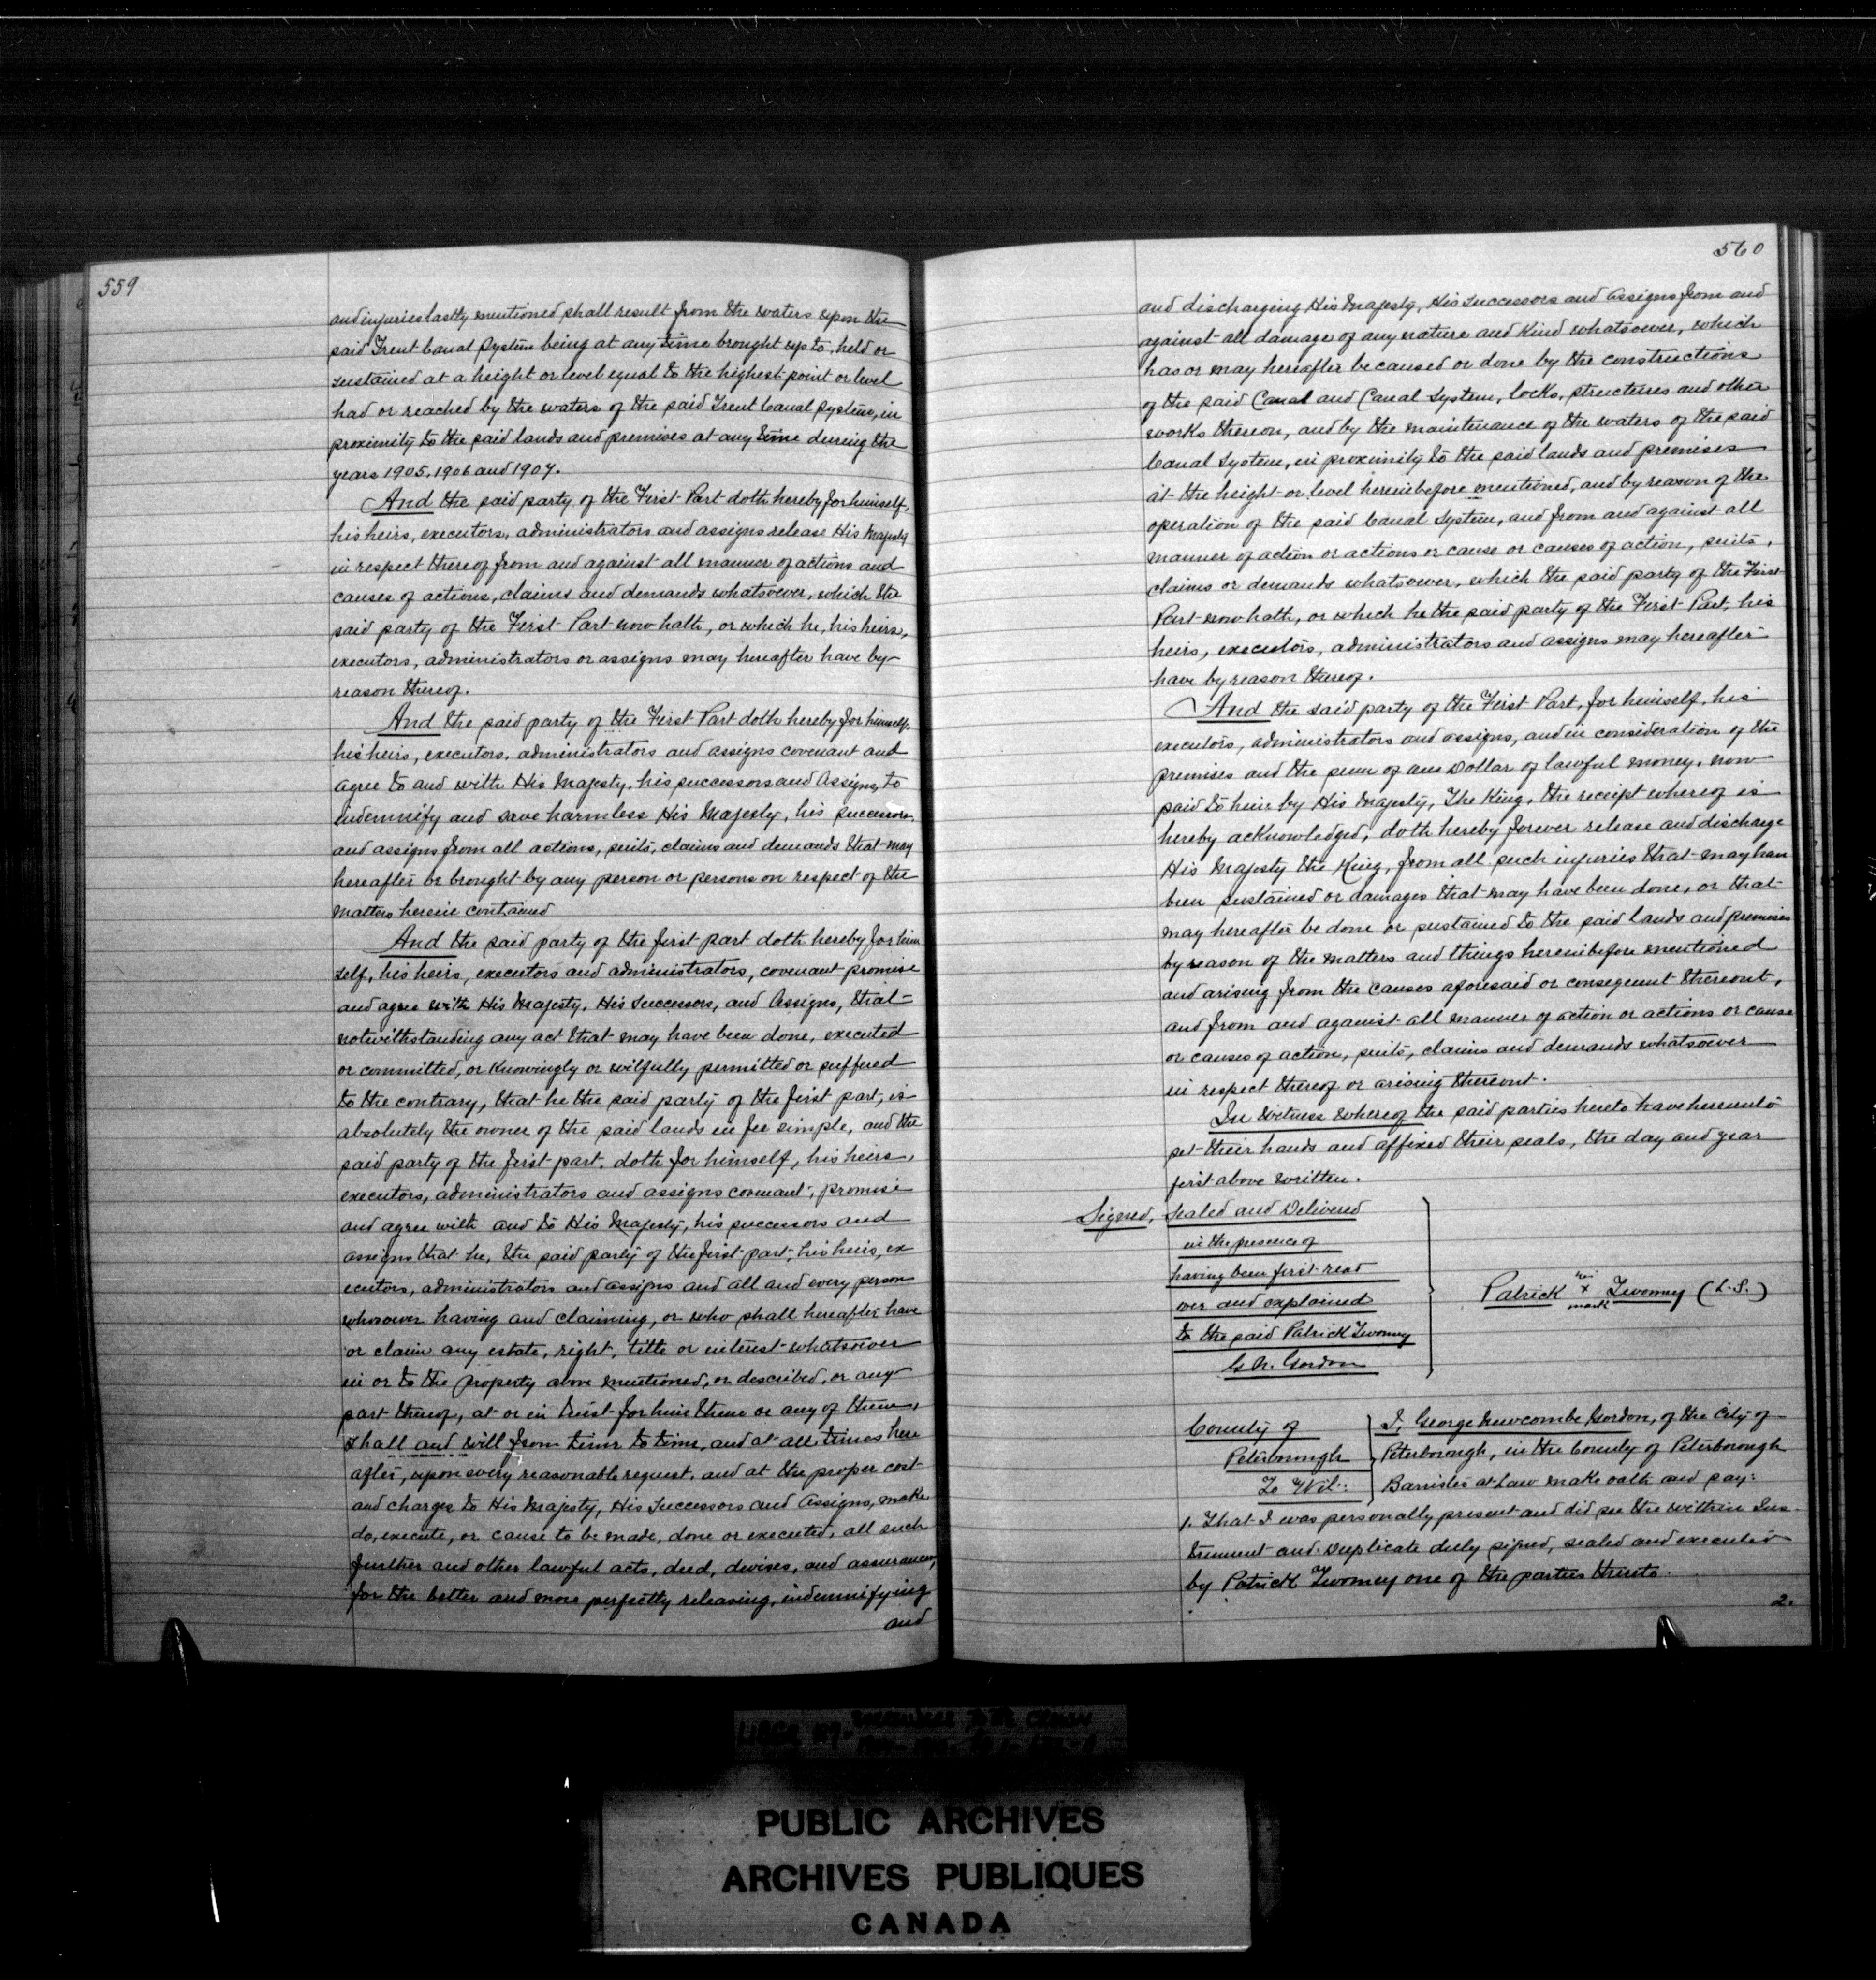 559
and injuries lastly mentioned shall result from the waters upon the
said Trent Canal System being at any time brought up to, held or
sustained at a height or level equal to the highest point or level
had or reached by the waters of the said Trent Canal System, in
proximity to the said lands and premises at any time during the
years 1905, 1906 and 1907.
And the said party of the First Part doth hereby for himself,
his heirs, executors, administrators and assigns release His Majesty
in respect thereof from and against all manner of actions and
causes of actions, claims and demands whatsoever, which the
said party of the First Part now hath, or which he, his heirs,
executors, administrators or assigns may hereafter have by
reason thereof.
And the said party of the First Part doth hereby for himself,
his heirs, executors, administrators and assigns covenant and
agree to and with His Majesty, his successors and Assigns, to
indemnify and save harmless His Majesty, his successors,
and assigns from all actions, suits, claims and demands that may
hereafter be brought by any person or persons on respect of the
matters herein contained
And the said party of the first part doth hereby for him
self, his heirs, executors and administrators, covenant promise
and agree with His Majesty, His Successors, and Assigns, that
notwithstanding any act that may have been done, executed
or committed, or knowingly or wilfully permitted or suffered
to the contrary, that he the said party of the first part, is
absolutely the owner of the said lands in fee simple, and the
said party of the first part, doth for himself, his heirs,
executors, administrators and assigns covenant, promise
and agree with and to His Majesty, his successors and
assigns that he, the said party of the first part, his heirs, ex
ecutors, administrators and assigns and all and every person
whosoever having and claiming, or who shall hereafter have
or claim any estate, right, title or interest whatsoever
in or to the property above mentioned, or described, or any
part thereof, at or in trust for him them or any of them,
shall and will from time to time, and at all times here
after, upon every reasonable request, and at the proper cost
and charges to His Majesty, His Successors and Assigns, make
do, execute, or cause to be made, done or executed, all such
further and other lawful acts, deed, devises, and assurances,
for the better and more perfectly releasing, indemnifying
and
560
and discharging His Majesty, His Successors and Assigns from and
against all damage of any nature and kind whatsoever, which
has or may hereafter be caused or done by the constructions
of the said Canal and Canal System, locks, structures and other
works thereon, and by the maintenance of the waters of the said
Canal System, in proximity to the said lands and premises
at the height or level hereinbefore mentioned, and by reason of the
operation of the said Canal System, and from and against all
manner of action or actions or cause or causes of action, suits,
claims or demands whatsoever, which the said party of the First
Part now hath, or which he the said party of the First Part, his
heirs, executors, administrators and assigns may hereafter
have by reason thereof.
And the said party of the First Part, for himself, his
executors, administrators and assigns, and in consideration of the
premises and the sum of one Dollar of lawful money, now
paid to him by His Majesty, The King, the receipt whereof is
hereby acknowledged, doth hereby forever release and discharge
His Majesty the King, from all such injuries that may have
been sustained or damages that may have been done, or that
may hereafter be done or sustained to the said lands and premises
by reason of the matters and things hereinbefore mentioned
and arising from the causes aforesaid or consequent thereont,
and from and against all manner of action or actions or cause
or causes of action, suits, claims and demands whatsoever
in respect thereof or arising thereont.
In Witness Whereof the said parties hereto have hereunto
set their hands and affixed their seals, the day and year
first above written.
Signed, Sealed and Delivered
in the presence of
having been first read
over and explained
to the said Patrick Twomey
G. N. Gordon
his
Patrick x Twomey (L.S.)
mark
County of
Peterborough
To Wit:
I, George Newcombe Gordon, of the City of
Peterborough, in the County of Peterborough
Barrister at Law make oath and say:
1. That I was personally present and did see the within Ins
trument and Duplicate duly signed, sealed and executed
by Patrick Twomey one of the parties thereto.
2.
PUBLIC ARCHIVES
ARCHIVES PUBLIQUES
CANADA